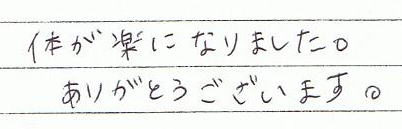 体が楽になりました。
ありがとうございます。